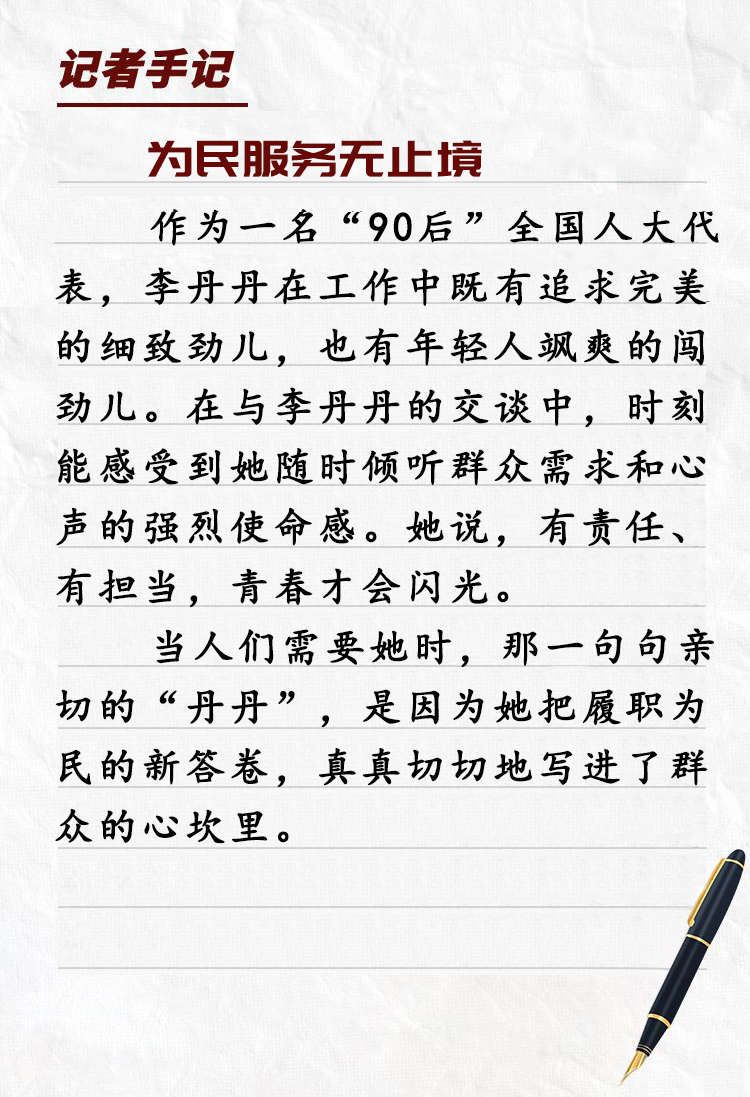 记者手记
为民服务无止境
作为一名“90后”全国人大代
表，李丹丹在工作中既有追求完美
的细致劲儿，也有年轻人飒爽的闯
劲儿。在与李丹丹的交谈中，时刻
能感受到她随时倾听群众需求和心
声的强烈使命感。她说，有责任、
有担当，青春才会闪光。
当人们需要她时，那一句句亲
切的“丹丹”，是因为她把履职为
民的新答卷，真真切切地写进了群
众的心坎里。